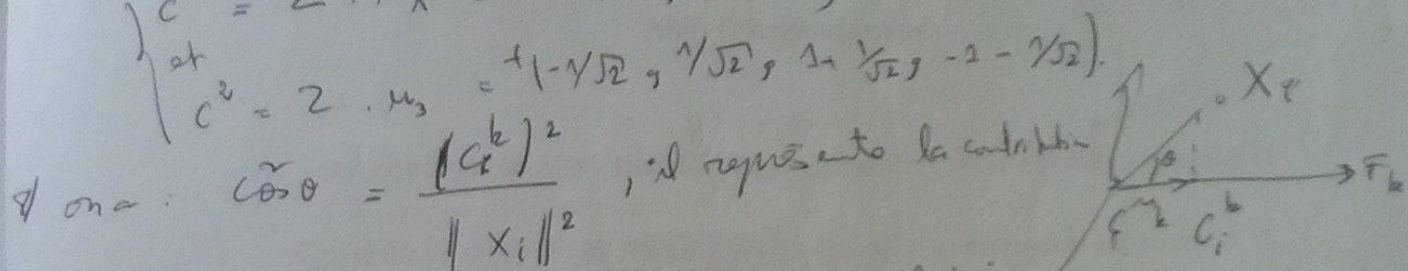 et
C² = 2 . u₃ = ᵗ(-1/√2 , 1/√2 , 1 + 1/√2 , -1 - 1/√2).
on a : cos²θ = (Cᵢᵏ)² / ‖Xᵢ‖² , il représente la contribution
Xᵢ
θ
Fₖ
Cᵢᵏ